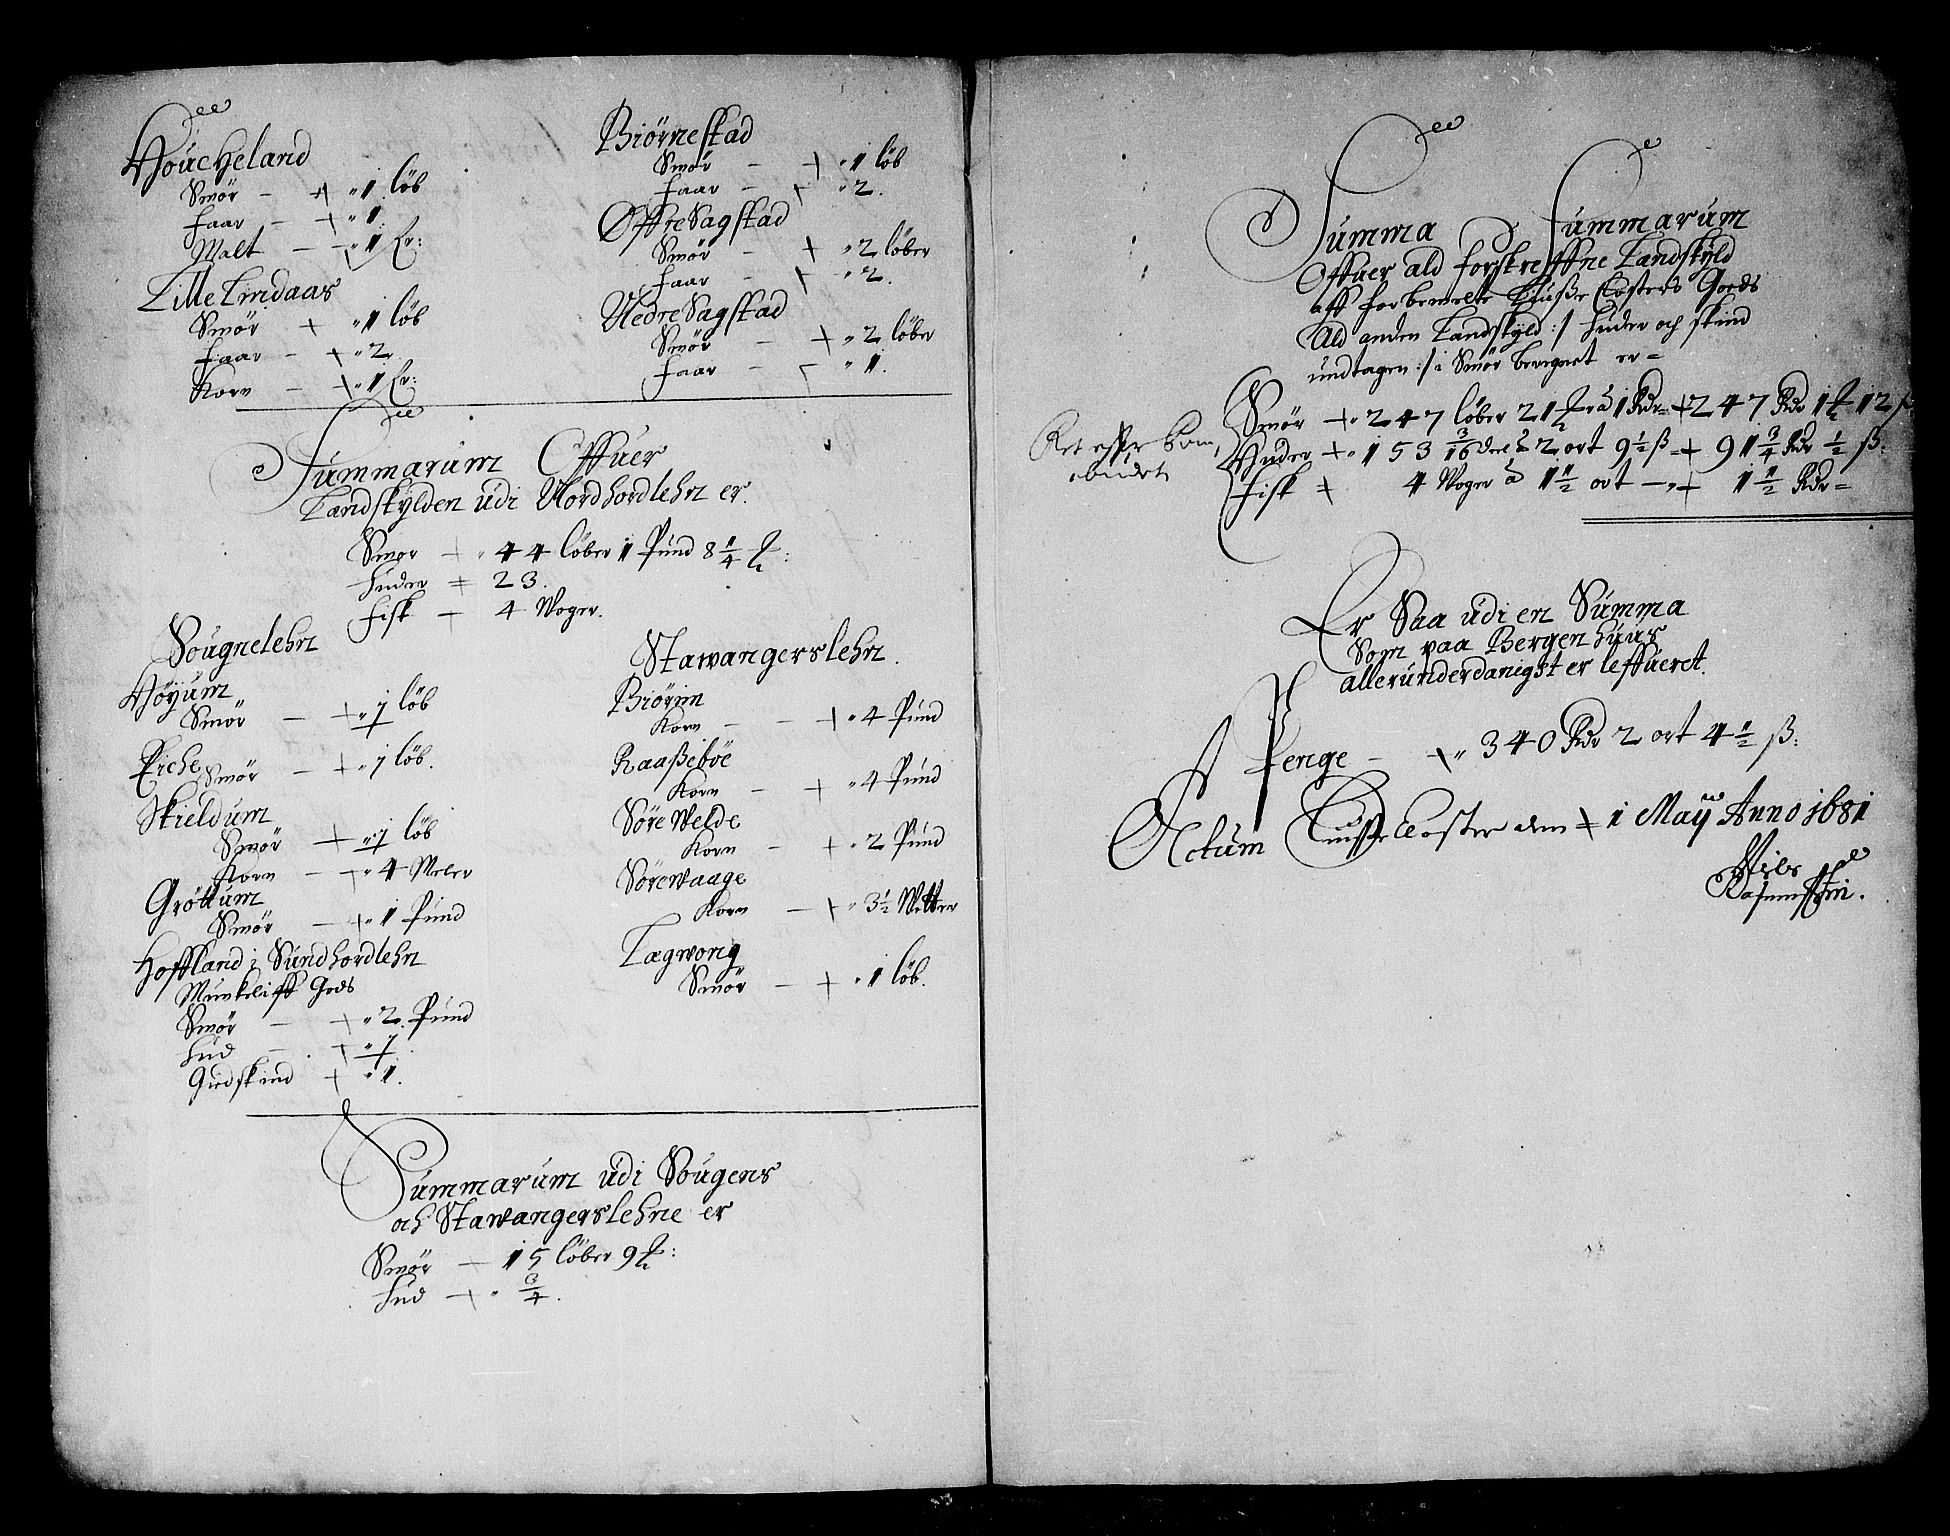 Houcheland
Smör — + " 1 löb
faar — + " 1
Malt — " 1 Er:
Lille Lindaas
Smör + " 1 löb
faar — + " 2.
Korn — + " 1 Er:
Biörnestad
Smör — + " 1 löb
faar — + " 2.
Øffre Sagstad
Smör — + " 2 löber
faar — + " 2.
Nedre Sagstad
Smör — + " 2 löber
faar — " 1.
Summarum Offuer
Landskylden udi Nordhordlehn er.
Smör + " 44 löber 1 Pund 8 1/4 ℔:
huder + 23.
fisk — 4 Woger.
Sougnelehn
Höÿum
Smör — + " 1 löb
Eiche
Smör — + " 1 löb.
Skieldum
Smör + " 1 löb
Korn — + " 4 Meler
Gröttum
Smör — + " 1 Pund
Hoffland i Sundhordlehn
Munkeliff Gods
Smör — + " 2. Pund
hud — + " 1
Giedskind + " 1.
Stawangerslehn.
Biörim
Korn — — + " 4 Pund
Raaßeböe
Korn — + " 4 Pund
Söre Welde
Korn — + " 2 Pund
Sörewaage
Korn — + " 3 1/2 Wetter
Tægwong
Smör — + " 1 löb.
Summarum udi Sougens
och Stawangerslehne er
Smör — + 15 löber 9 ℔:
hud — + " 3/4.
Summa Summarum
Offuer ald forskreffne Landskÿld
aff forbemelte Closters Goeds
Ald anden Landskÿld :/ huder och skind
undtagen :/ i Smör beregnet er =
Smör + " 247 löber 21 ℔ à 1 Rdr = + 247 Rdr 1 12 ß
Huder + " 153 3/16 deel à 2 ort 9 1/2 ß = + 91 3/4 Rdr 1/2 ß:
fisk + 4 Woger à 1 1/2 ort — " + 1 1/2 Rdr =
Er Saa udi en Summa
Som paa Bergenhuus
allerunderdanigst er leffueret.
Penge — + " 340 Rdr 2 ort 4 1/2 ß:
Actum Closter den + 1 Maÿ Anno 1681
Niels